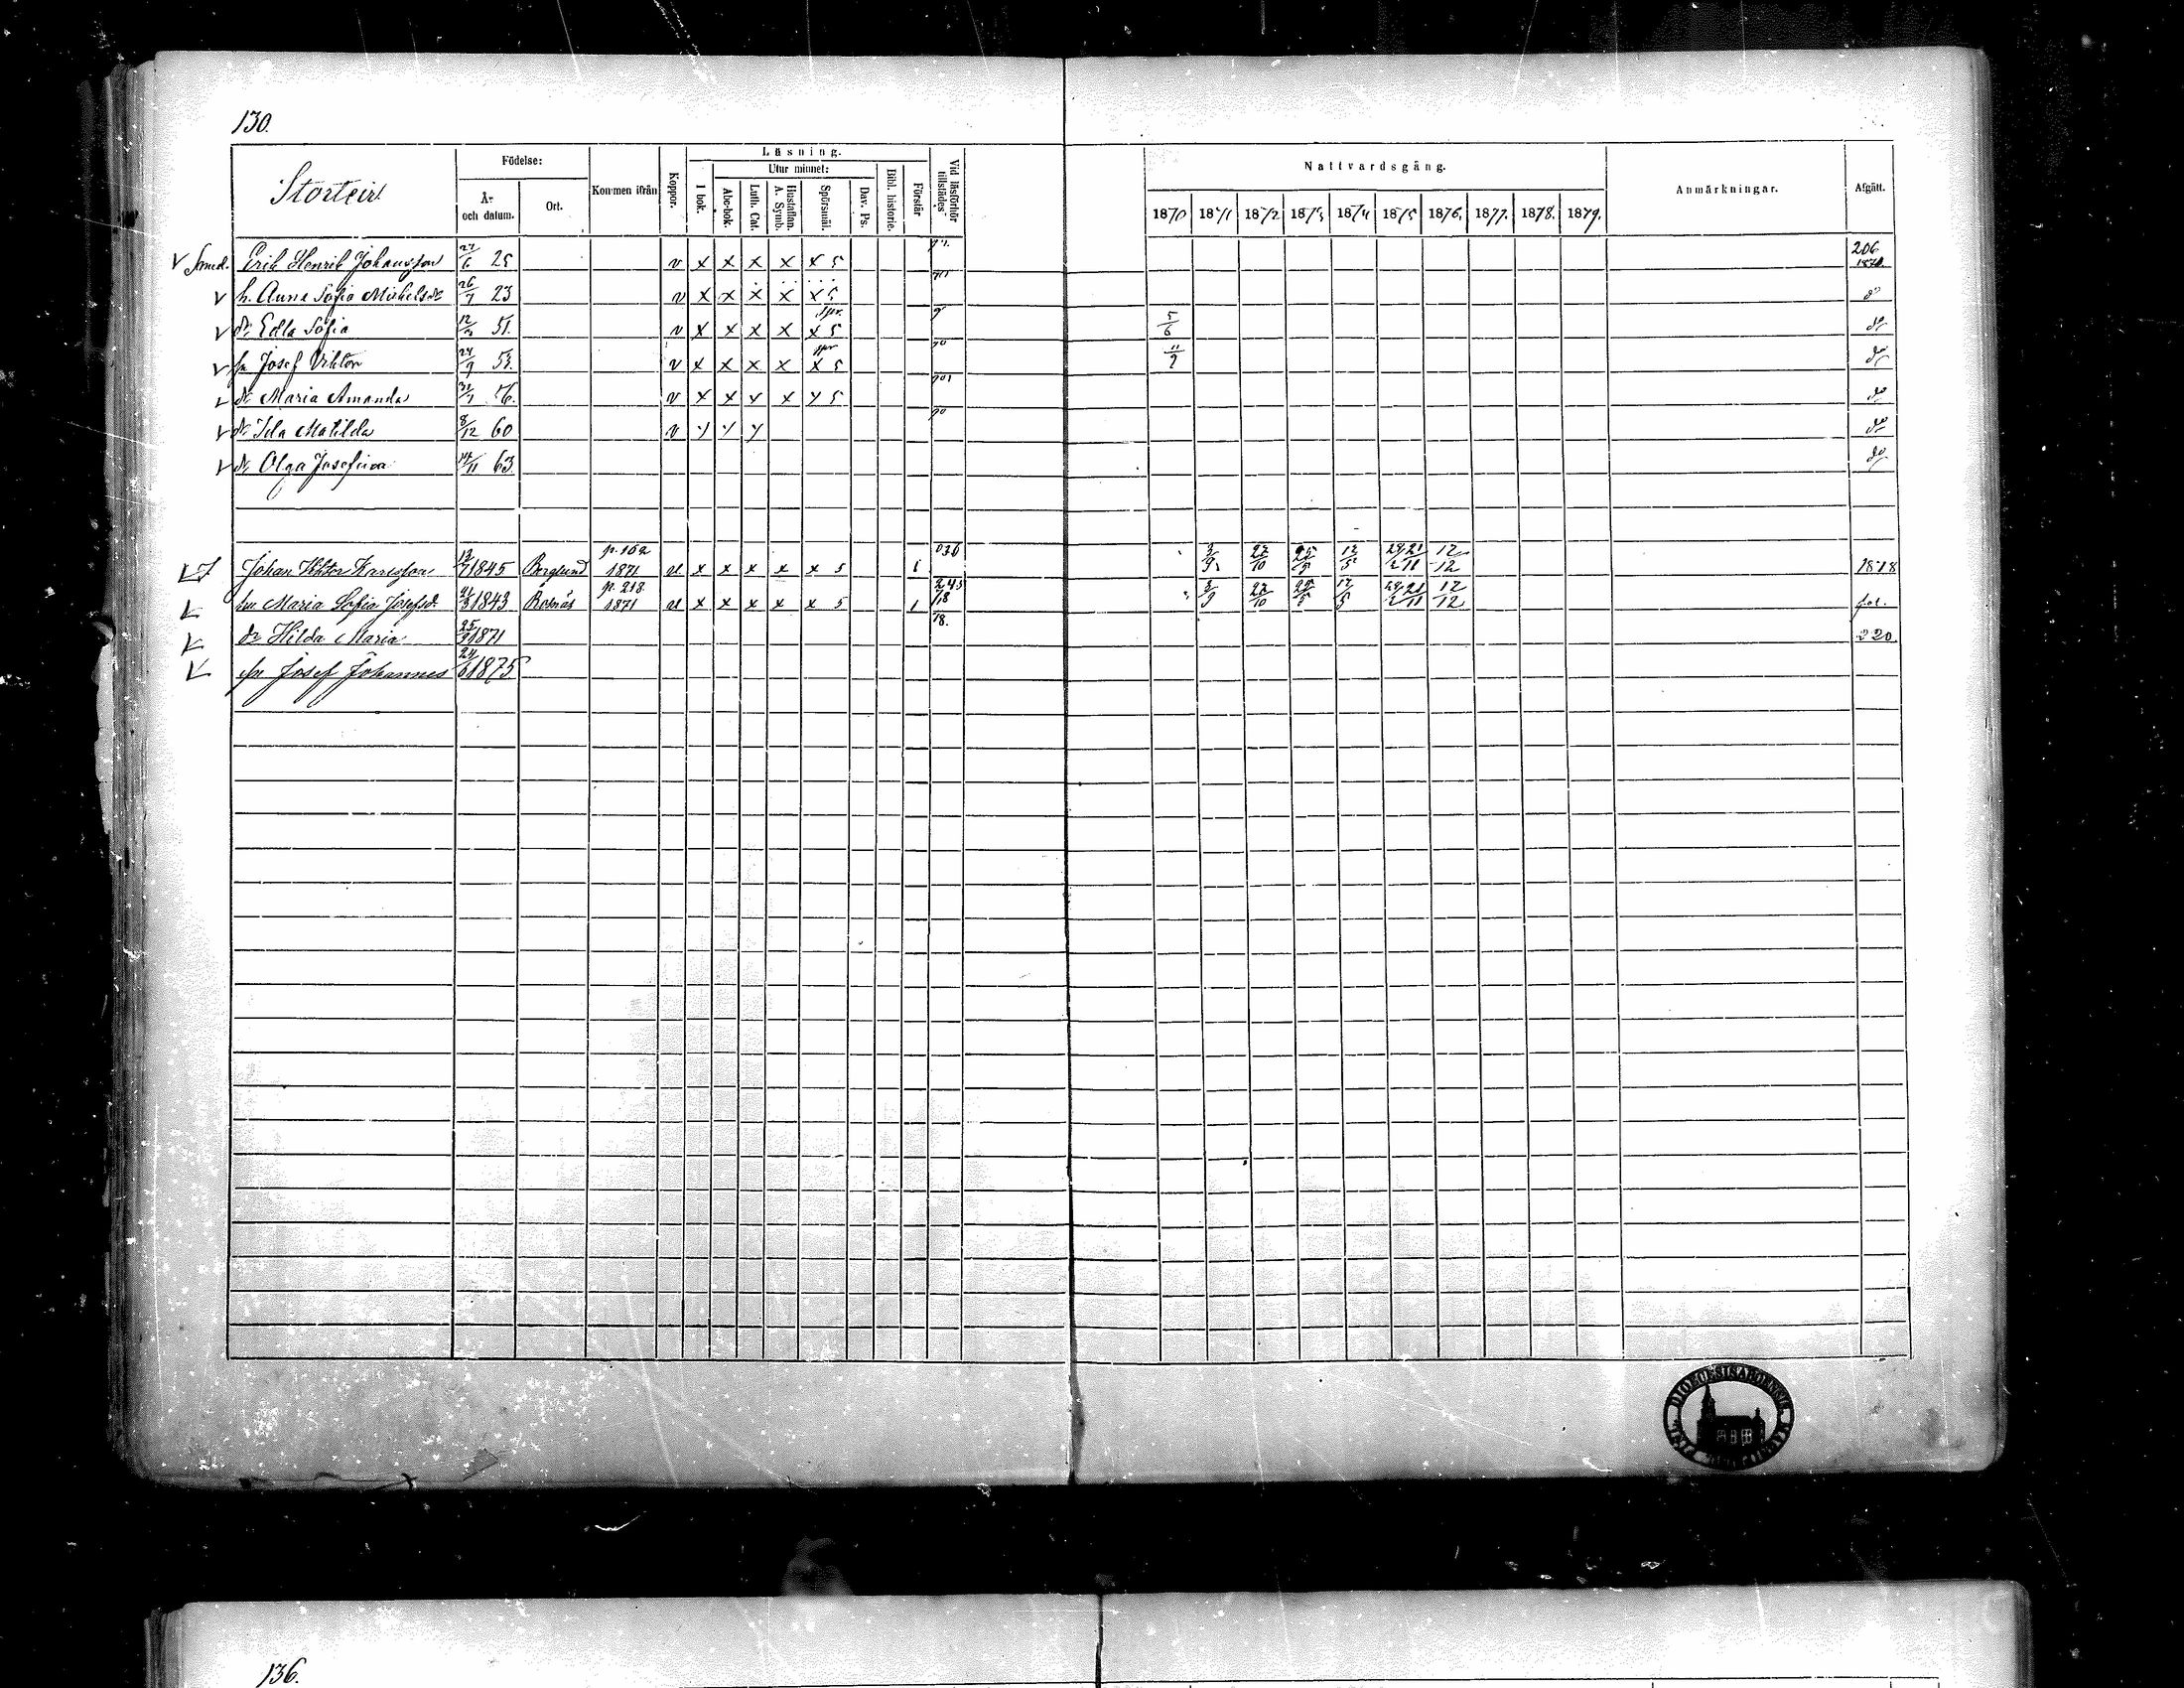 130.
Storteir
Födelse:
År och datum.
Ort.
Kommen ifrån
Koppor.
Läsning.
I bok.
Utur minnet:
Abc-bok.
Luth. Cat.
Hustaflan. A. Symb.
Spörsmål.
Dav. Ps.
Bibl. historie.
Förstår
Vid läsförhör tillstädes
Nattvardsgång.
1870 1871 1872 1873 1874 1875 1876. 1877. 1878. 1879.
Anmärkningar.
Afgått.
Erik Henrik Johansson 27/6 25 v x x x x x 5 206 1870.
h. Anna Sofia Michelsdr 26/7 23 v x x x x x 5 do
dr Edla Sofia 51. v x x x x x 5 5/6 do
sn Josef Viktor 24/9 53. v x x x x x 5 11/9 do
dr Maria Amanda 31/1 56. v x x x x x 5 do
dr Ida Matilda 8/12 60 v do
dr Olga Josefina 14/11 63. do
Johan Viktor Karlsson 13/7 1845 Berglund p. 162 1871 x x x x x 5 3/9 27/10 25/5 12/5 21/11 12/12 1878
hu Maria Sofia Josefsd. 1843 p. 218 1871 x x x x x 5 3/9 27/10 25/5 12/5 21/11 12/12 fol.
dr Hilda Maria 25/9 1871 78. 220.
sn Josef Johannes 24/6 1875
DIOECESIS ABOENSIS
136.